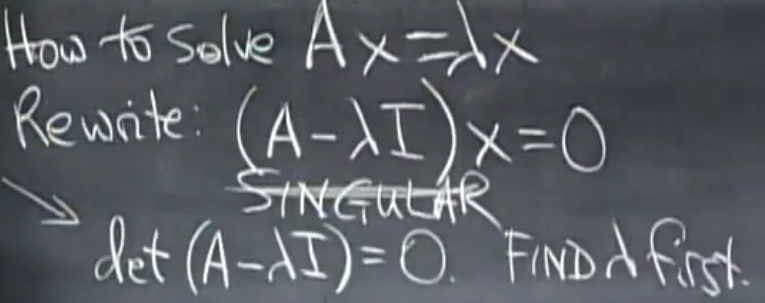 How to Solve Ax=λx
Rewrite: (A-λI)x=0
SINGULAR
det(A-λI)=0. FIND λ first.